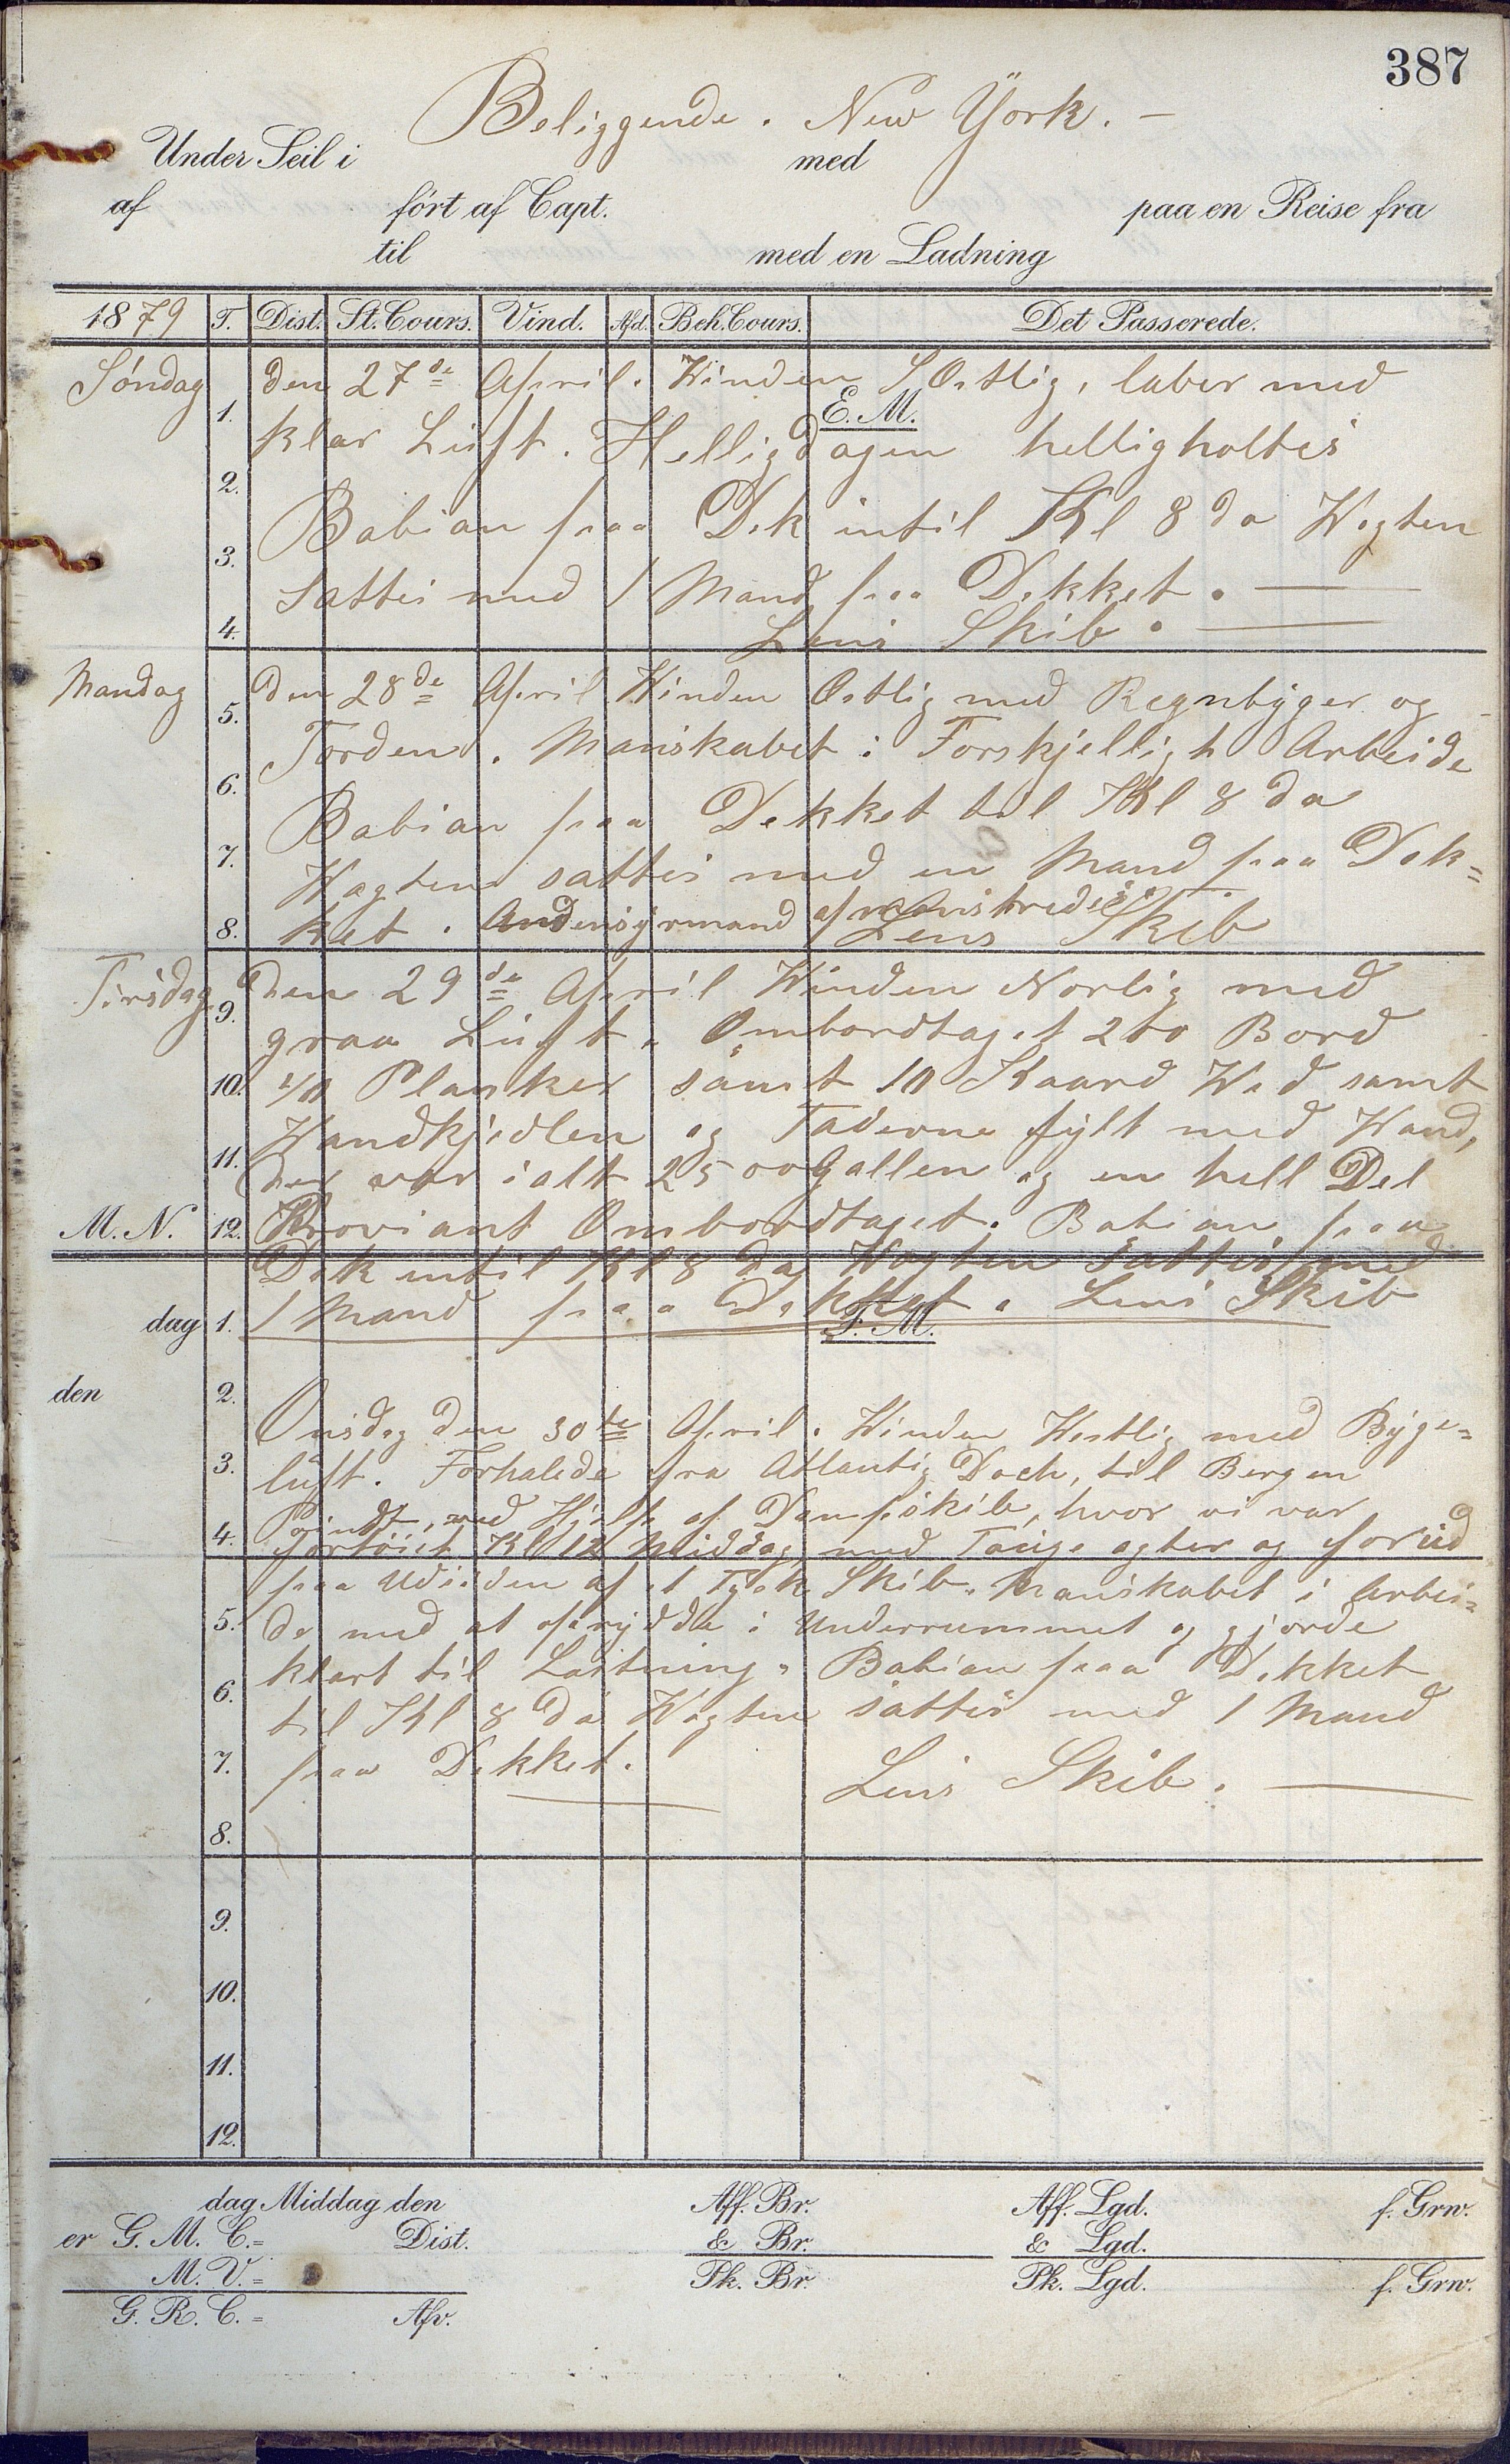 387
Beliggende. New York. —
Under Seil i med
af fört af Capt. paa en Reise fra
til med en Ladning
1879 T. Dist. St. Cours. Vind. Afd. Beh. Cours. Det Passerede.
Söndag den 27de April. Winden S Ostlig, laber med
1. E. M.
klar Luft. Helligdagen helligholtes
2.
Babian paa Dek intil Kl 8 da Wagten
3.
sattes med 1 Mand paa Dekket. —
4. Lens Skib. —
Mandag den 28de April Winden Ostlig med Regnbyger og
5.
Torden. Manskabet i Forskjelligt Arbeide
6.
Babian paa Dekket til Kl 8 da
7.
Wagten sattes med en Mand paa Dek=
8. ket. Andenstyrmand afmönstredes.
Lens Skib
Tirsdag den 29de April Winden Norlig med
9.
graa Luft. Ombordtaget 200 Bord
10. Planker samt 10 Kaard Wed samt
Wandkjedlen og Faderne fylt med Wand,
11.
der var ialt 2500 Gallen og en hell Del
M. N. 12. Proviant Ombordtaget. Babian paa
Dek intil Kl 8 da Wagten sattes med
dag 1. 1 Mand paa Dekket. Lens Skib
F. M.
den 2.
Onsdag den 30te April. Winden Westlig med Byge=
3. luft. Forhalede fra Atlantig Dock, til Bergen
4. Poindt, med Hjelp af Dampskib, hvor vi var
fortöiet Kl 12 Middag med Touge agter og forud
paa Udsiden af et Tysk Skib. Manskabet i Arbei=
5. de med at oprydde i Underrummet og gjorde
klart til Lastning. Babian paa Dekket
6.
til Kl 8 da Wagten sattes med 1 Mand
7. paa Dekket. Lens Skib. —
8.
9.
10.
11.
12.
dag Middag den Aff. Br. Aff. Lgd. f. Grw.
er G. M. C.= Dist. & Br. & Lgd.
M. V.= Pk. Br. Pk. Lgd. f. Grw.
G. R. C. = Afv.